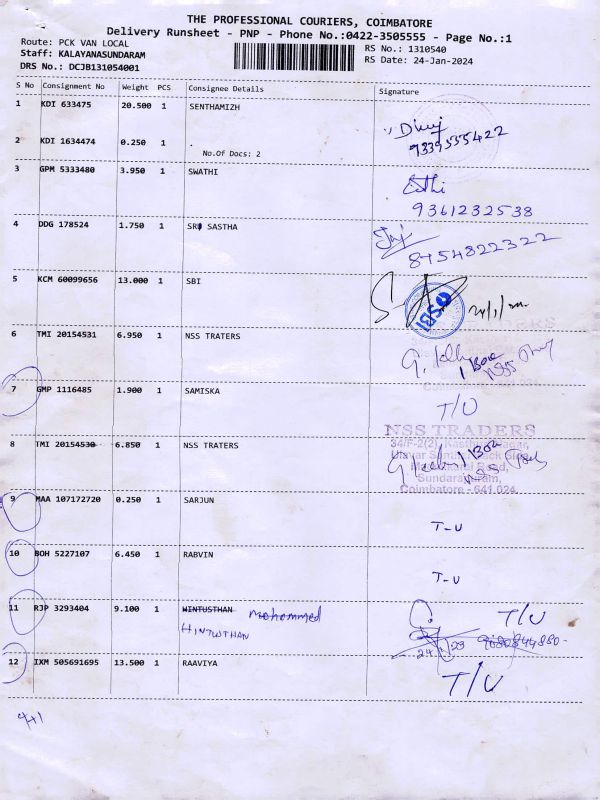 THE PROFESSIONAL COURIERS, COIMBATORE
Delivery Runsheet - PNP - Phone No.:0422-3505555 - Page No.:1
Route: PCK VAN LOCAL RS No.: 1310540
Staff: KALAYANASUNDARAM RS Date: 24-Jan-2024
DRS No.: DCJB131054001
S No Consignment No Weight PCS Consignee Details Signature
1 KDI 633475 20.500 1 SENTHAMIZH
9339555422
2 KDI 1634474 0.250 1 .
No.Of Docs: 2
3 GPM 5333480 3.950 1 SWATHI
9361232538
4 DDG 178524 1.750 1 SRI SASTHA
8754822322
5 KCM 60099656 13.000 1 SBI
SBI
6 TMI 20154531 6.950 1 NSS TRATERS
1 Box
7 GMP 1116485 1.900 1 SAMISKA T/U
NSS TRADERS
34/F-2(2)
8 TMI 20154530 6.850 1 NSS TRATERS 1 Box
Sundarapuram,
Coimbatore - 641 024.
9 MAA 107172720 0.250 1 SARJUN
T-U
10 BOH 5227107 6.450 1 RABVIN
T-U
11 RJP 3293404 9.100 1 WINTUSTHAN mohammed T/U
HINTWTHAN
12 IXM 505691695 13.500 1 RAAVIYA T/U